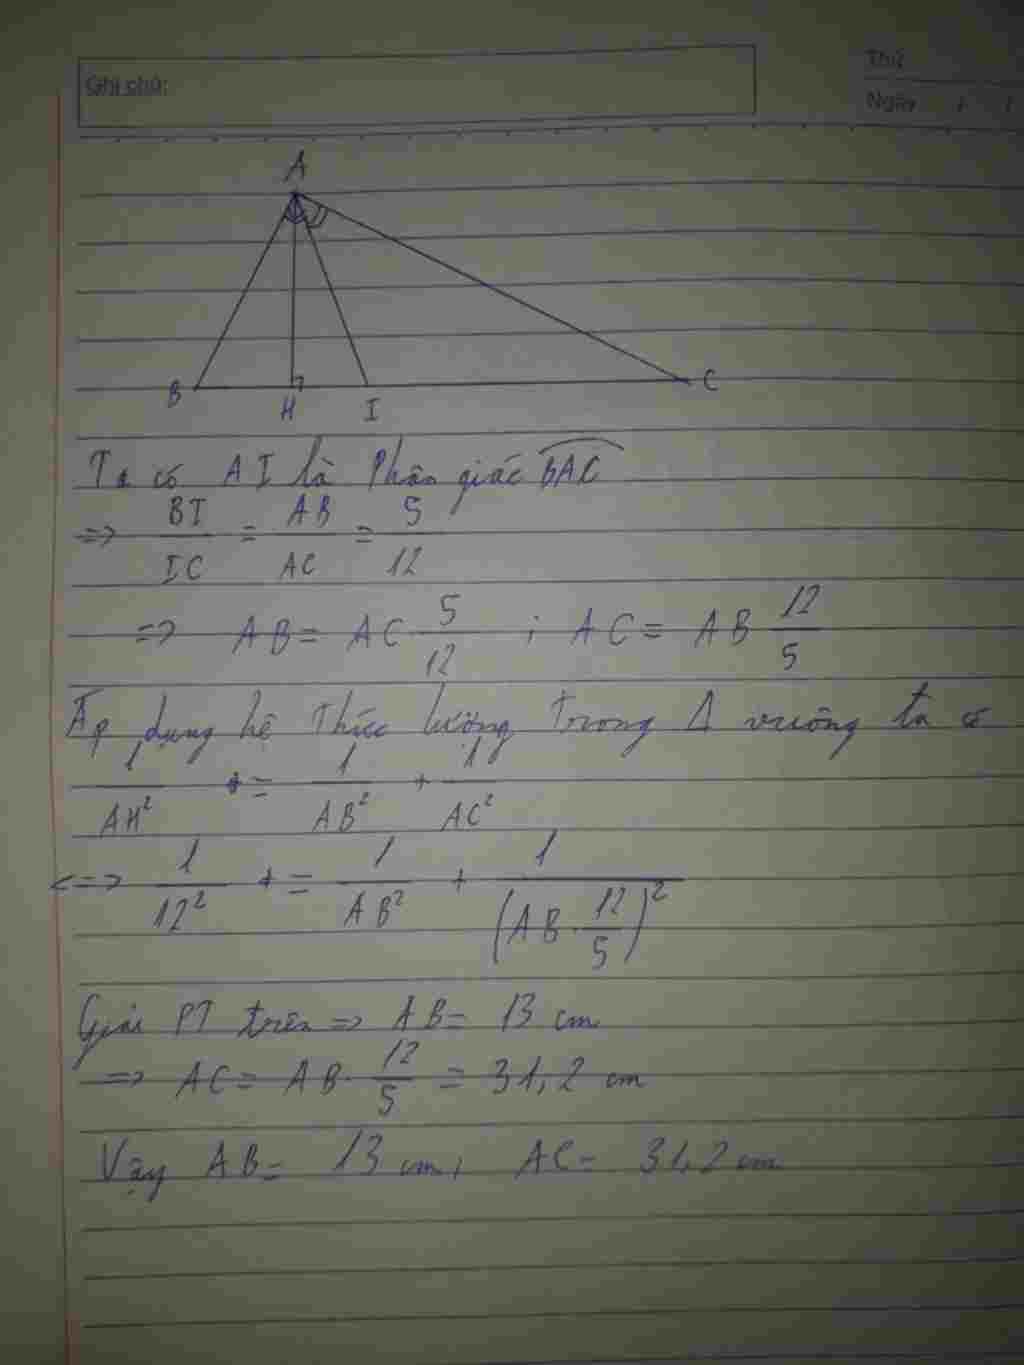 Ghi chú:
Thứ
Ngày / /
A
B H I C
Ta có AI là Phân giác BAC
=> BI/IC = AB/AC = 5/12
=> AB = AC 5/12 ; AC = AB 12/5
Áp dụng hệ Thức lượng trong Δ vuông ta có
1/AH² = 1/AB² + 1/AC²
<=> 1/12² = 1/AB² + 1/(AB · 12/5)²
Giải PT trên => AB = 13 cm
=> AC = AB · 12/5 = 31,2 cm
Vậy AB = 13 cm, AC = 31,2 cm